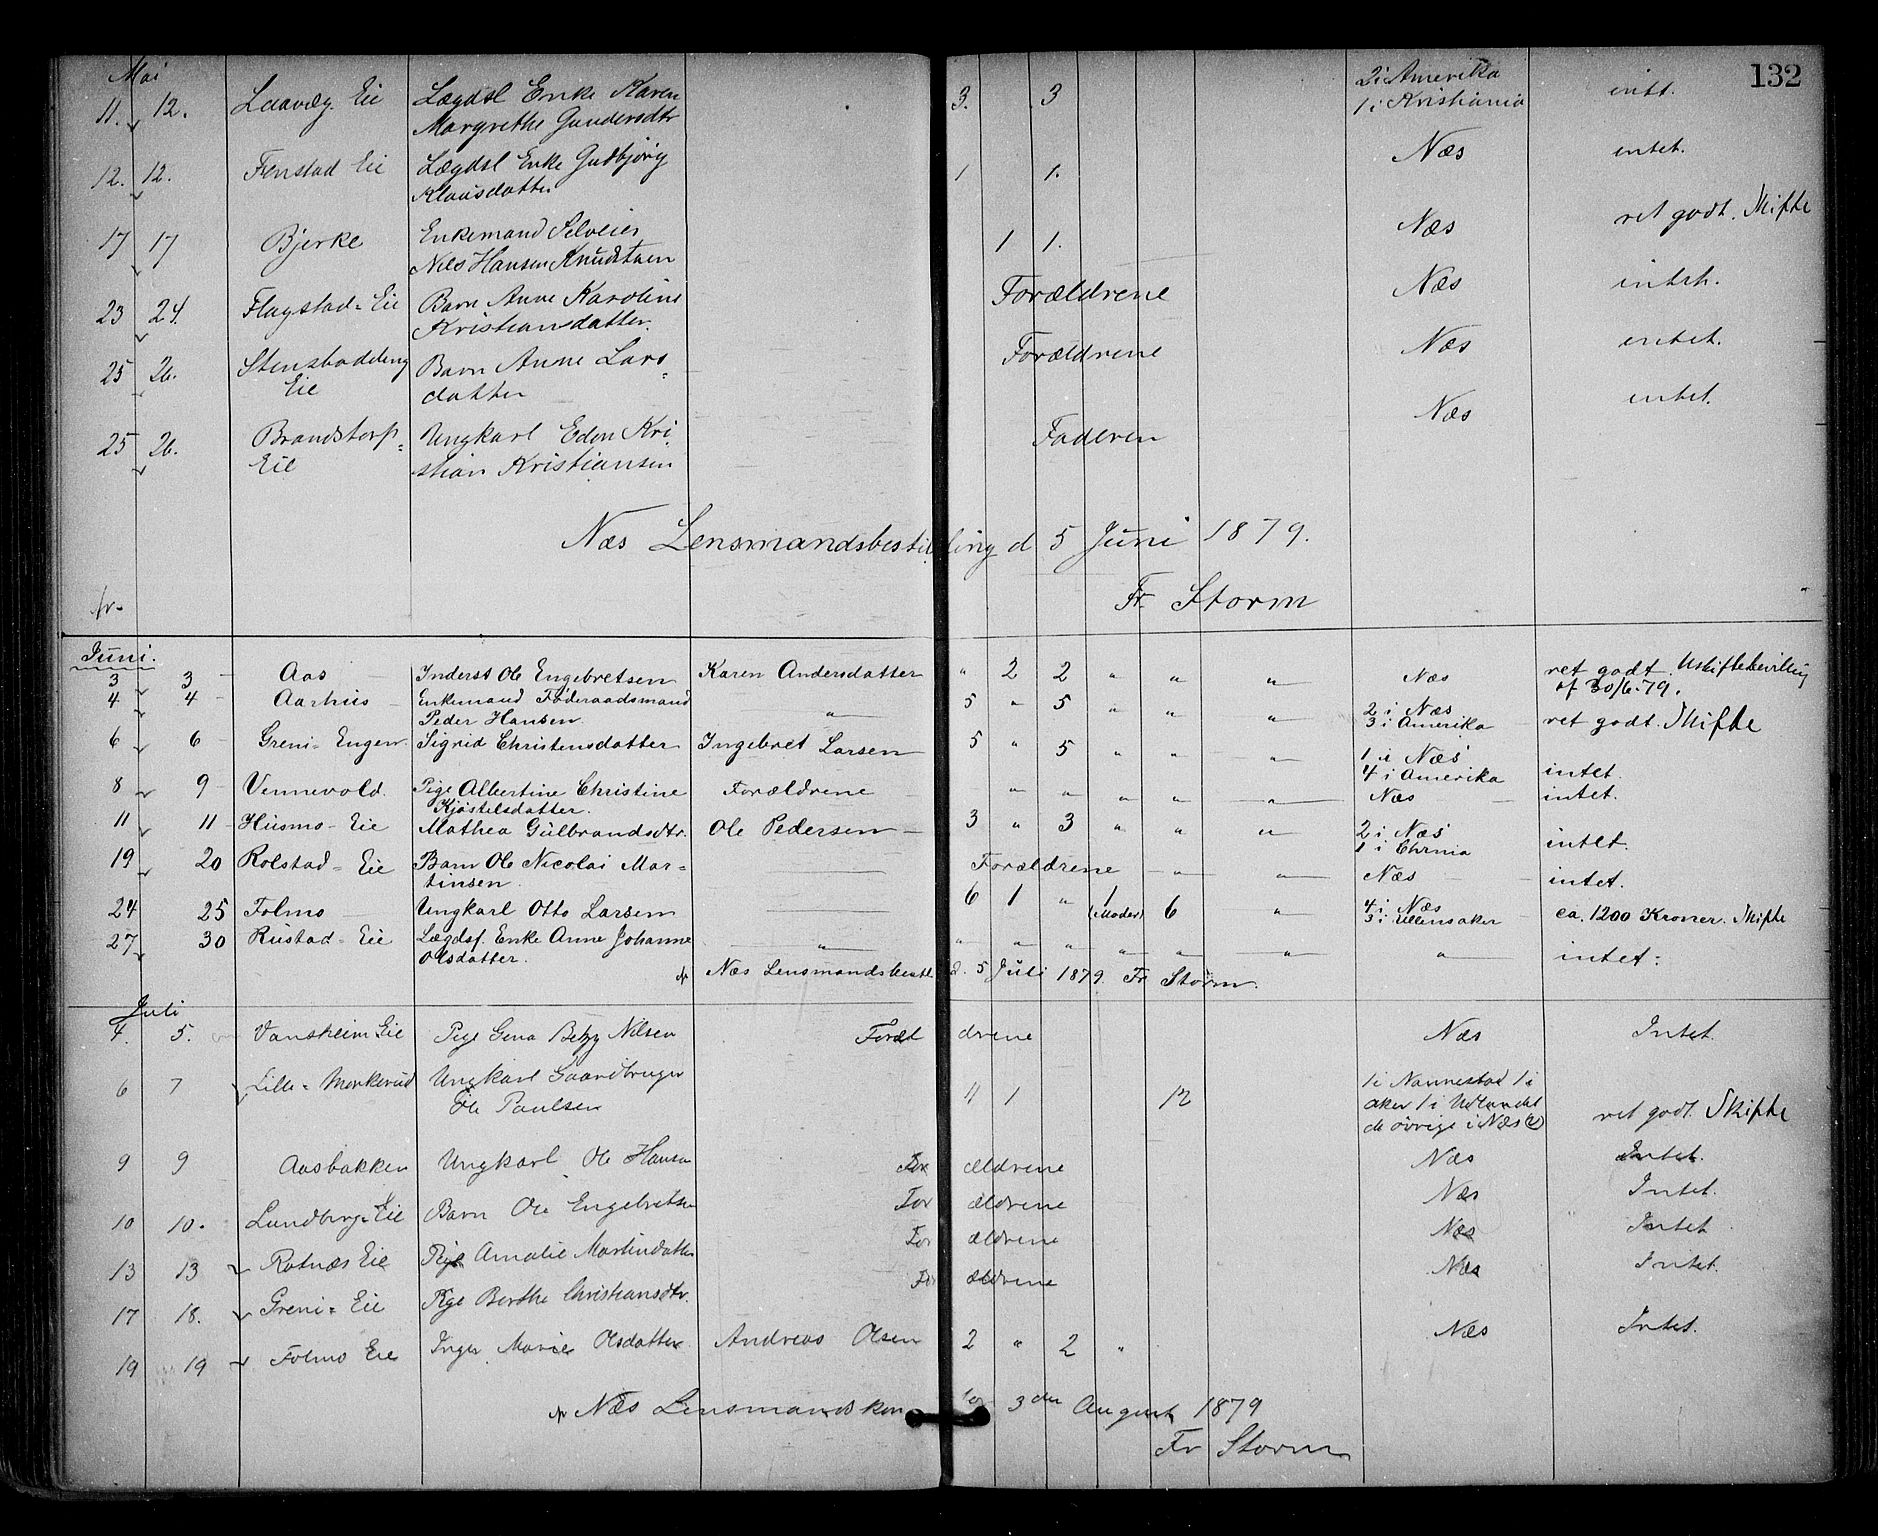 132
Mai
11. 12. Laavæg. Eie Lægdsl Enke Karen 3. 3 2 i Amerika intt.
Margrethe Gundersdtr 1 i Kristiania
12. 12. Fenstad Eie Lægdsl Enke Gudbjörg 1 1. Næs intet.
Klausdatter
17 17 Bjerke Enkemand Selveier 1 1. Næs ret godt. Skifte
Nils Hansen Knudstuen
23 24. Flagstad-Eie Barn Anne Karoline Forældrene Næs intet.
Kristiansdatter.
25 26. Stensbaddeng Barn Anne Lars= Forældrene Næs intet.
Eie datter
25 26. Brandstorp= Ungkarl Edon Kri Faderen Næs intet.
Eie stian Kristiansen
Næs Lensmandsbestilling d 5 Juni 1879.
Fr. Storm
Juni.
3 3 - Aas Inderst Ole Engebretsen Karen Andersdatter " 2 2 " " " Næs ret godt. Uskiftebevilling
af 30/6-79.
4 4 - Aarhus - Enkemand Föderaadsmand " 5 " 5 " " " 2 i Næs
Peder Hansen. 3 i Amerika - ret godt. Skifte
6 6 - Greni-Engen Sigrid Christensdatter Ingebret Larsen 5 " 5 " " " 1 i Næs
4 i Amerika intet.
8 9 - Vennevold. Pige Albertine Christine Forældrene - " " " " " Næs - intet.
Kjöstelsdatter.
11 11 - Husmo-Eie Mathea Gulbrandsdtr. Ole Pedersen - 3 " 3 " " " 2 i Næs
1 i Chrnia intet.
19 20 Rolstad-Eie Barn Ole Nicolai Mar= Forældrene - " " Næs - intet.
tinsen.
24 25 Folmo Ungkarl Otto Larsen 6 1 " 1 (Moder) 6 " 4 i Næs
3 i Ullensaker ca. 1200 Kroner. Skifte
27 30 Rustad-Eie Lægdsf. Enke Anne Johanne " " " " " " " " intet.
Olsdatter.
Næs Lensmandsbestl d. 5 Juli 1879. Fr Storm.
Juli
4. 5. Vansheim Eie Pige Gina Betzy Nilsen Foræl drene Næs Intet.
6 7 Lille-Mørkerud Ungkarl Gaardbruger 11 1 12 1 i Nannestad 1 i
Ole Paulsen aker 1 i Udlandet ret godt. Skifte
de øvrige i Næs
9 9 Aasbakken Ungkarl Ole Hansen For ældrene Næs Intet.
10 10. Lundberg-Eie Barn Ole Engebretsen For ældrene Næs Intet.
13 13 Rotnæs Eie Pige Amalie Martindatter For ældrene Næs Intet
17 18. Greni-Eie Pige Berthe Christiansdtr. For ældrene Næs Intet.
19 19 Folmo Eie Inger Marie Olsdatter Andreas Olsen 2 " 2 " Næs Intet.
Næs Lensmandskontor 3den August 1879
Fr Storm